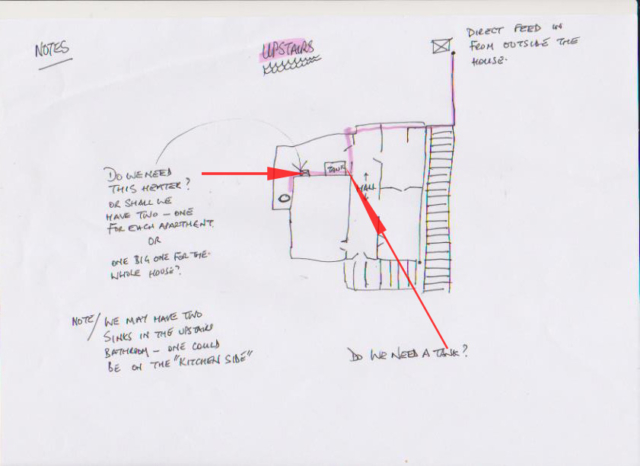 NOTES
UPSTAIRS
DIRECT FEED IN
FROM OUTSIDE THE
HOUSE.
TANK
HALL
DO WE NEED
THIS HEATER?
OR SHALL WE
HAVE TWO - ONE
FOR EACH APARTMENT
OR
ONE BIG ONE FOR THE
WHOLE HOUSE?
NOTE/ WE MAY HAVE TWO
SINKS IN THE UPSTAIRS
BATHROOM - ONE COULD
BE ON THE "KITCHEN SIDE"
DO WE NEED A TANK?